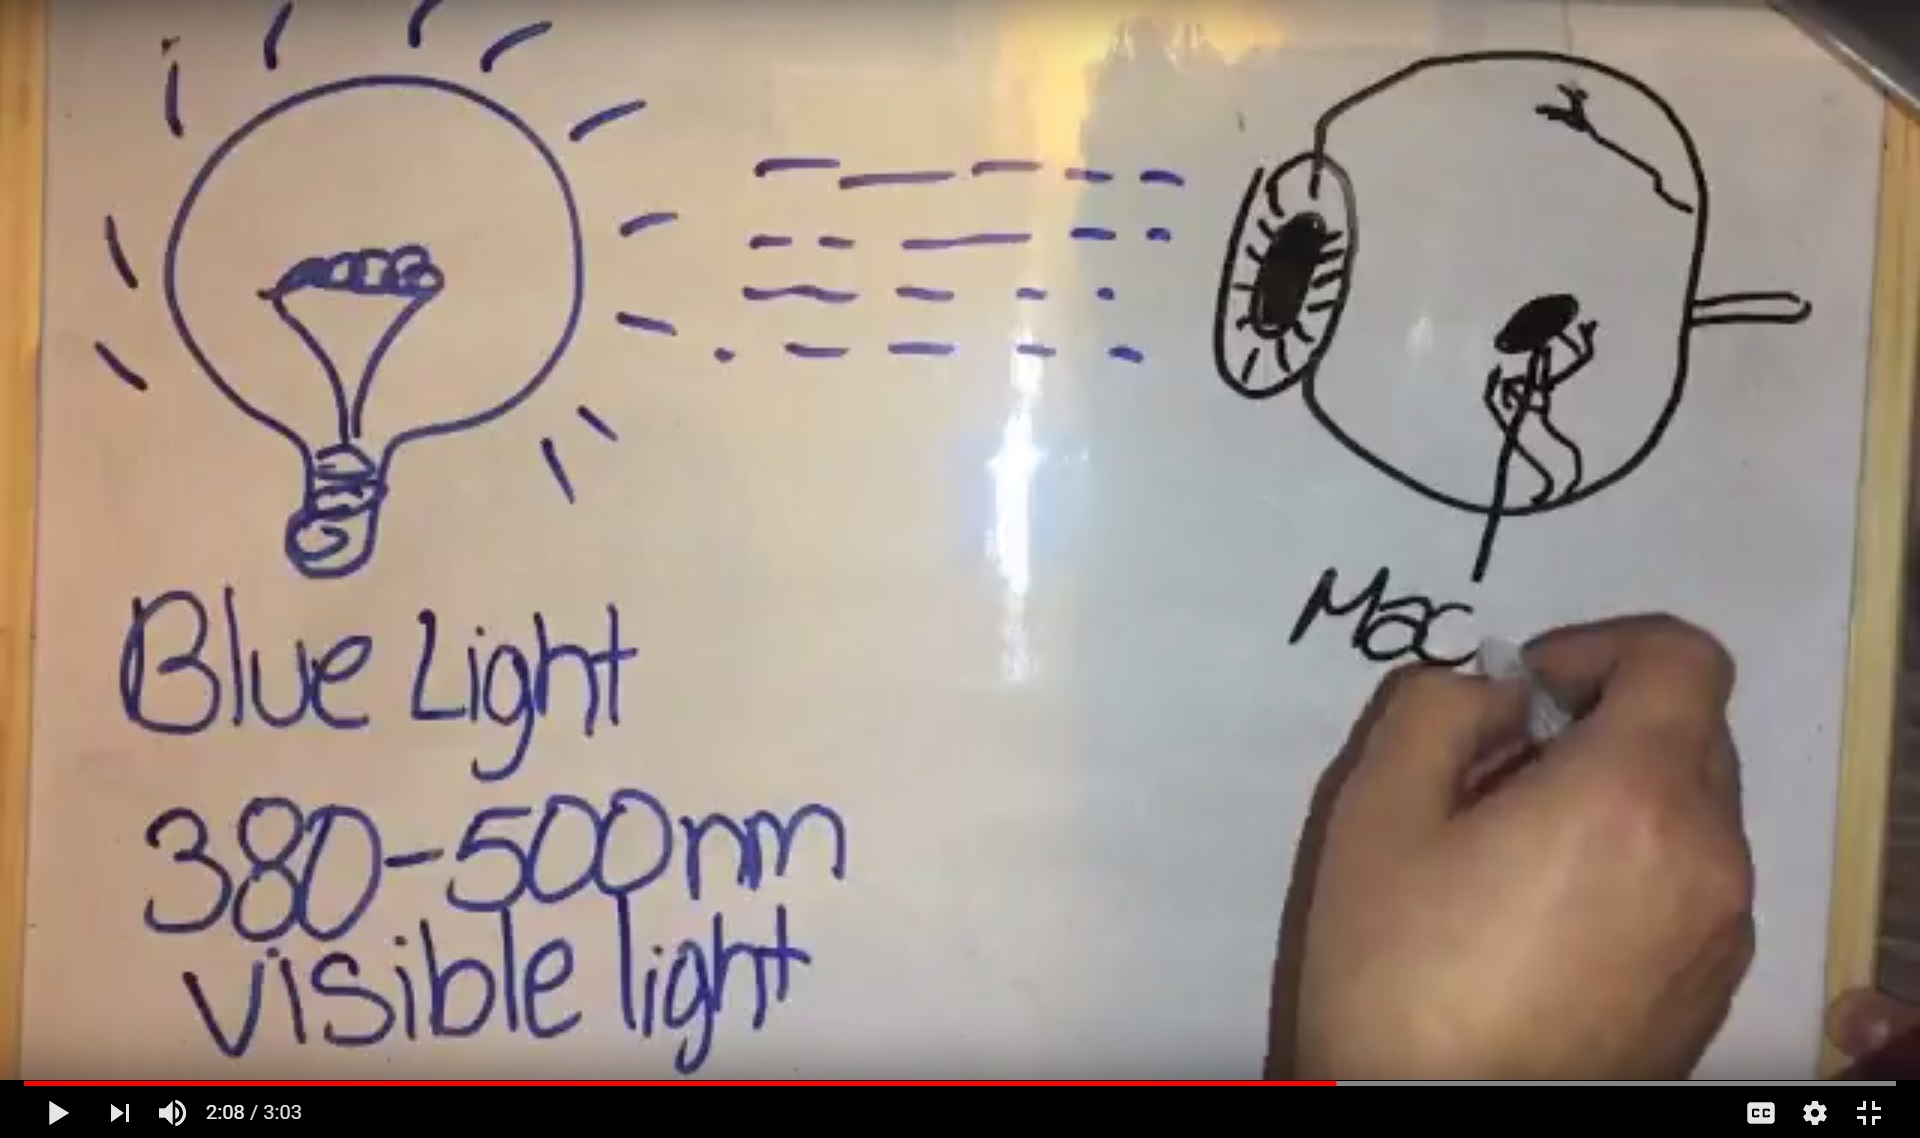 Blue Light
380-500nm
visible light
Mac
2:08 / 3:03
CC